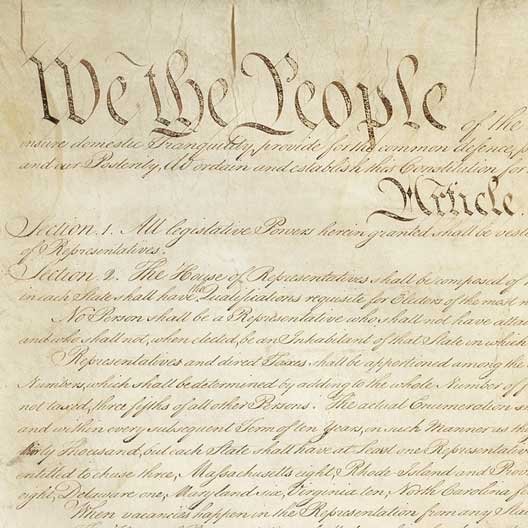 We the People of the
insure domestic Tranquility, provide for the common defence,
and our Posterity, do ordain and establish this Constitution for
Article
Section 1. All legislative Powers herein granted shall be
of Representatives.
Section 2. The House of Representatives shall be composed of
in each State shall have the Qualifications requisite for Electors of the most
No Person shall be a Representative who shall not have
and who shall not, when elected, be an Inhabitant of that State in which
Representatives and direct Taxes shall be apportioned among the
Numbers, which shall be determined by adding to the whole Number of
not taxed, three fifths of all other Persons. The actual Enumeration
and within every subsequent Term of ten Years, in such Manner as
thirty Thousand, but each State shall have at Least one Representative
entitled to chuse three, Massachusetts eight, Rhode Island and
eight, Delaware one, Maryland six, Virginia ten, North Carolina
When vacancies happen in the Representation from any